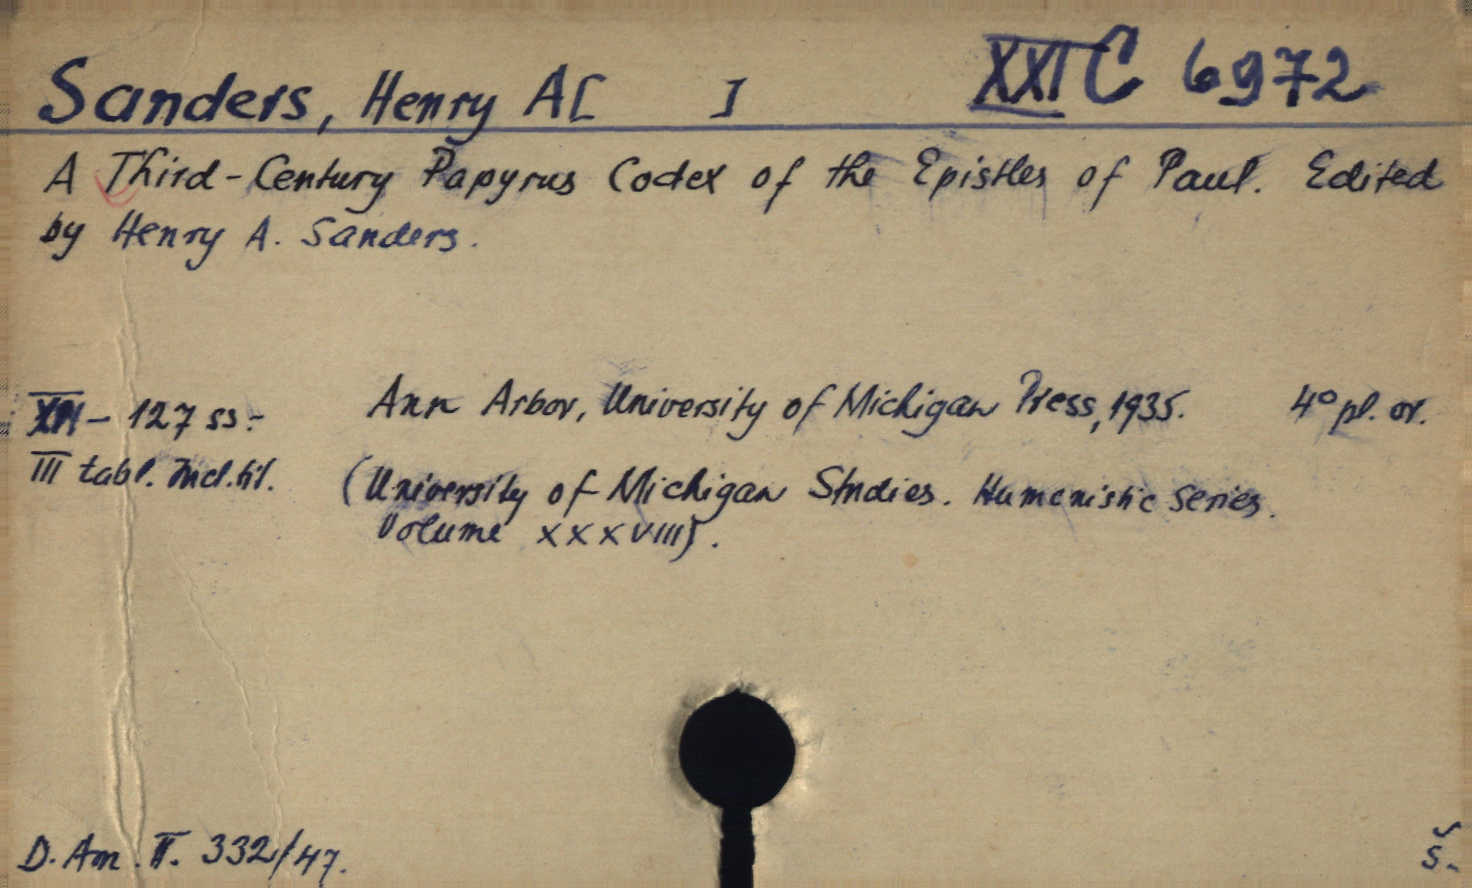 Sanders, Henry A[ ]
XXI C 6972
A Third-Century Papyrus Codex of the Epistles of Paul. Edited
by Henry A. Sanders.
Ann Arbor, University of Michigan Press, 1935. 4° pl. or.
– 127 ss.–
III tabl. incl. til.
(University of Michigan Studies. Humanistic Series.
Volume XXXVIII).
D. Am. II. 332/47.
Š.